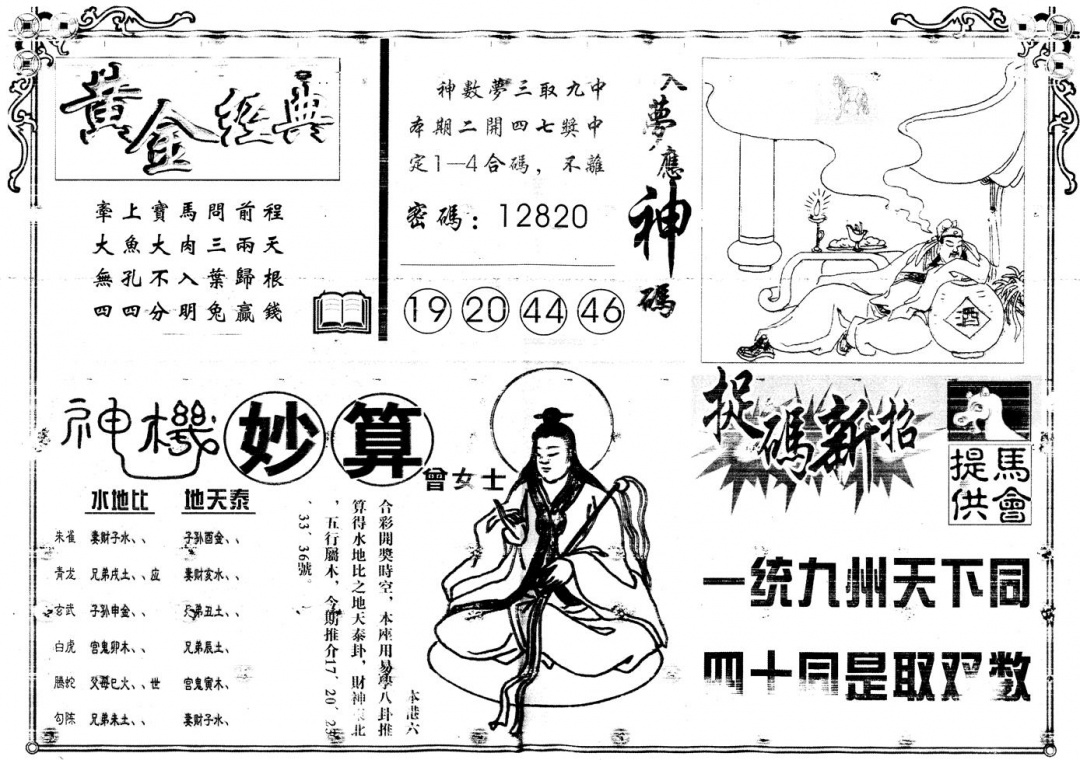 黄金經典
牽上寳馬問前程
大魚大肉三兩天
無孔不入葉歸根
四四分明兔贏錢
神數夢三取九中
本期二開四七獎中
定1—4合碼，不離
密碼：12820
19 20 44 46
入夢應神碼
酒
神機妙算
曾女士
水地比 地天泰
朱雀 妻财子水、、 子孙酉金、、
青龙 兄弟戌土、、应 妻财亥水、、
玄武 子孙申金、、 兄弟丑土、、
白虎 官鬼卯木、、 兄弟辰土、
腾蛇 父母巳火、、世 官鬼寅木、
勾陈 兄弟未土、、 妻财子水、
本港六
合彩開獎時空，本座用易學八卦推
算得水地比之地天泰卦，財神 北
，五行屬木，今期推介17、20、29
、33、36號。
捉碼新招
馬會提供
一统九州天下同
四十同是取双数